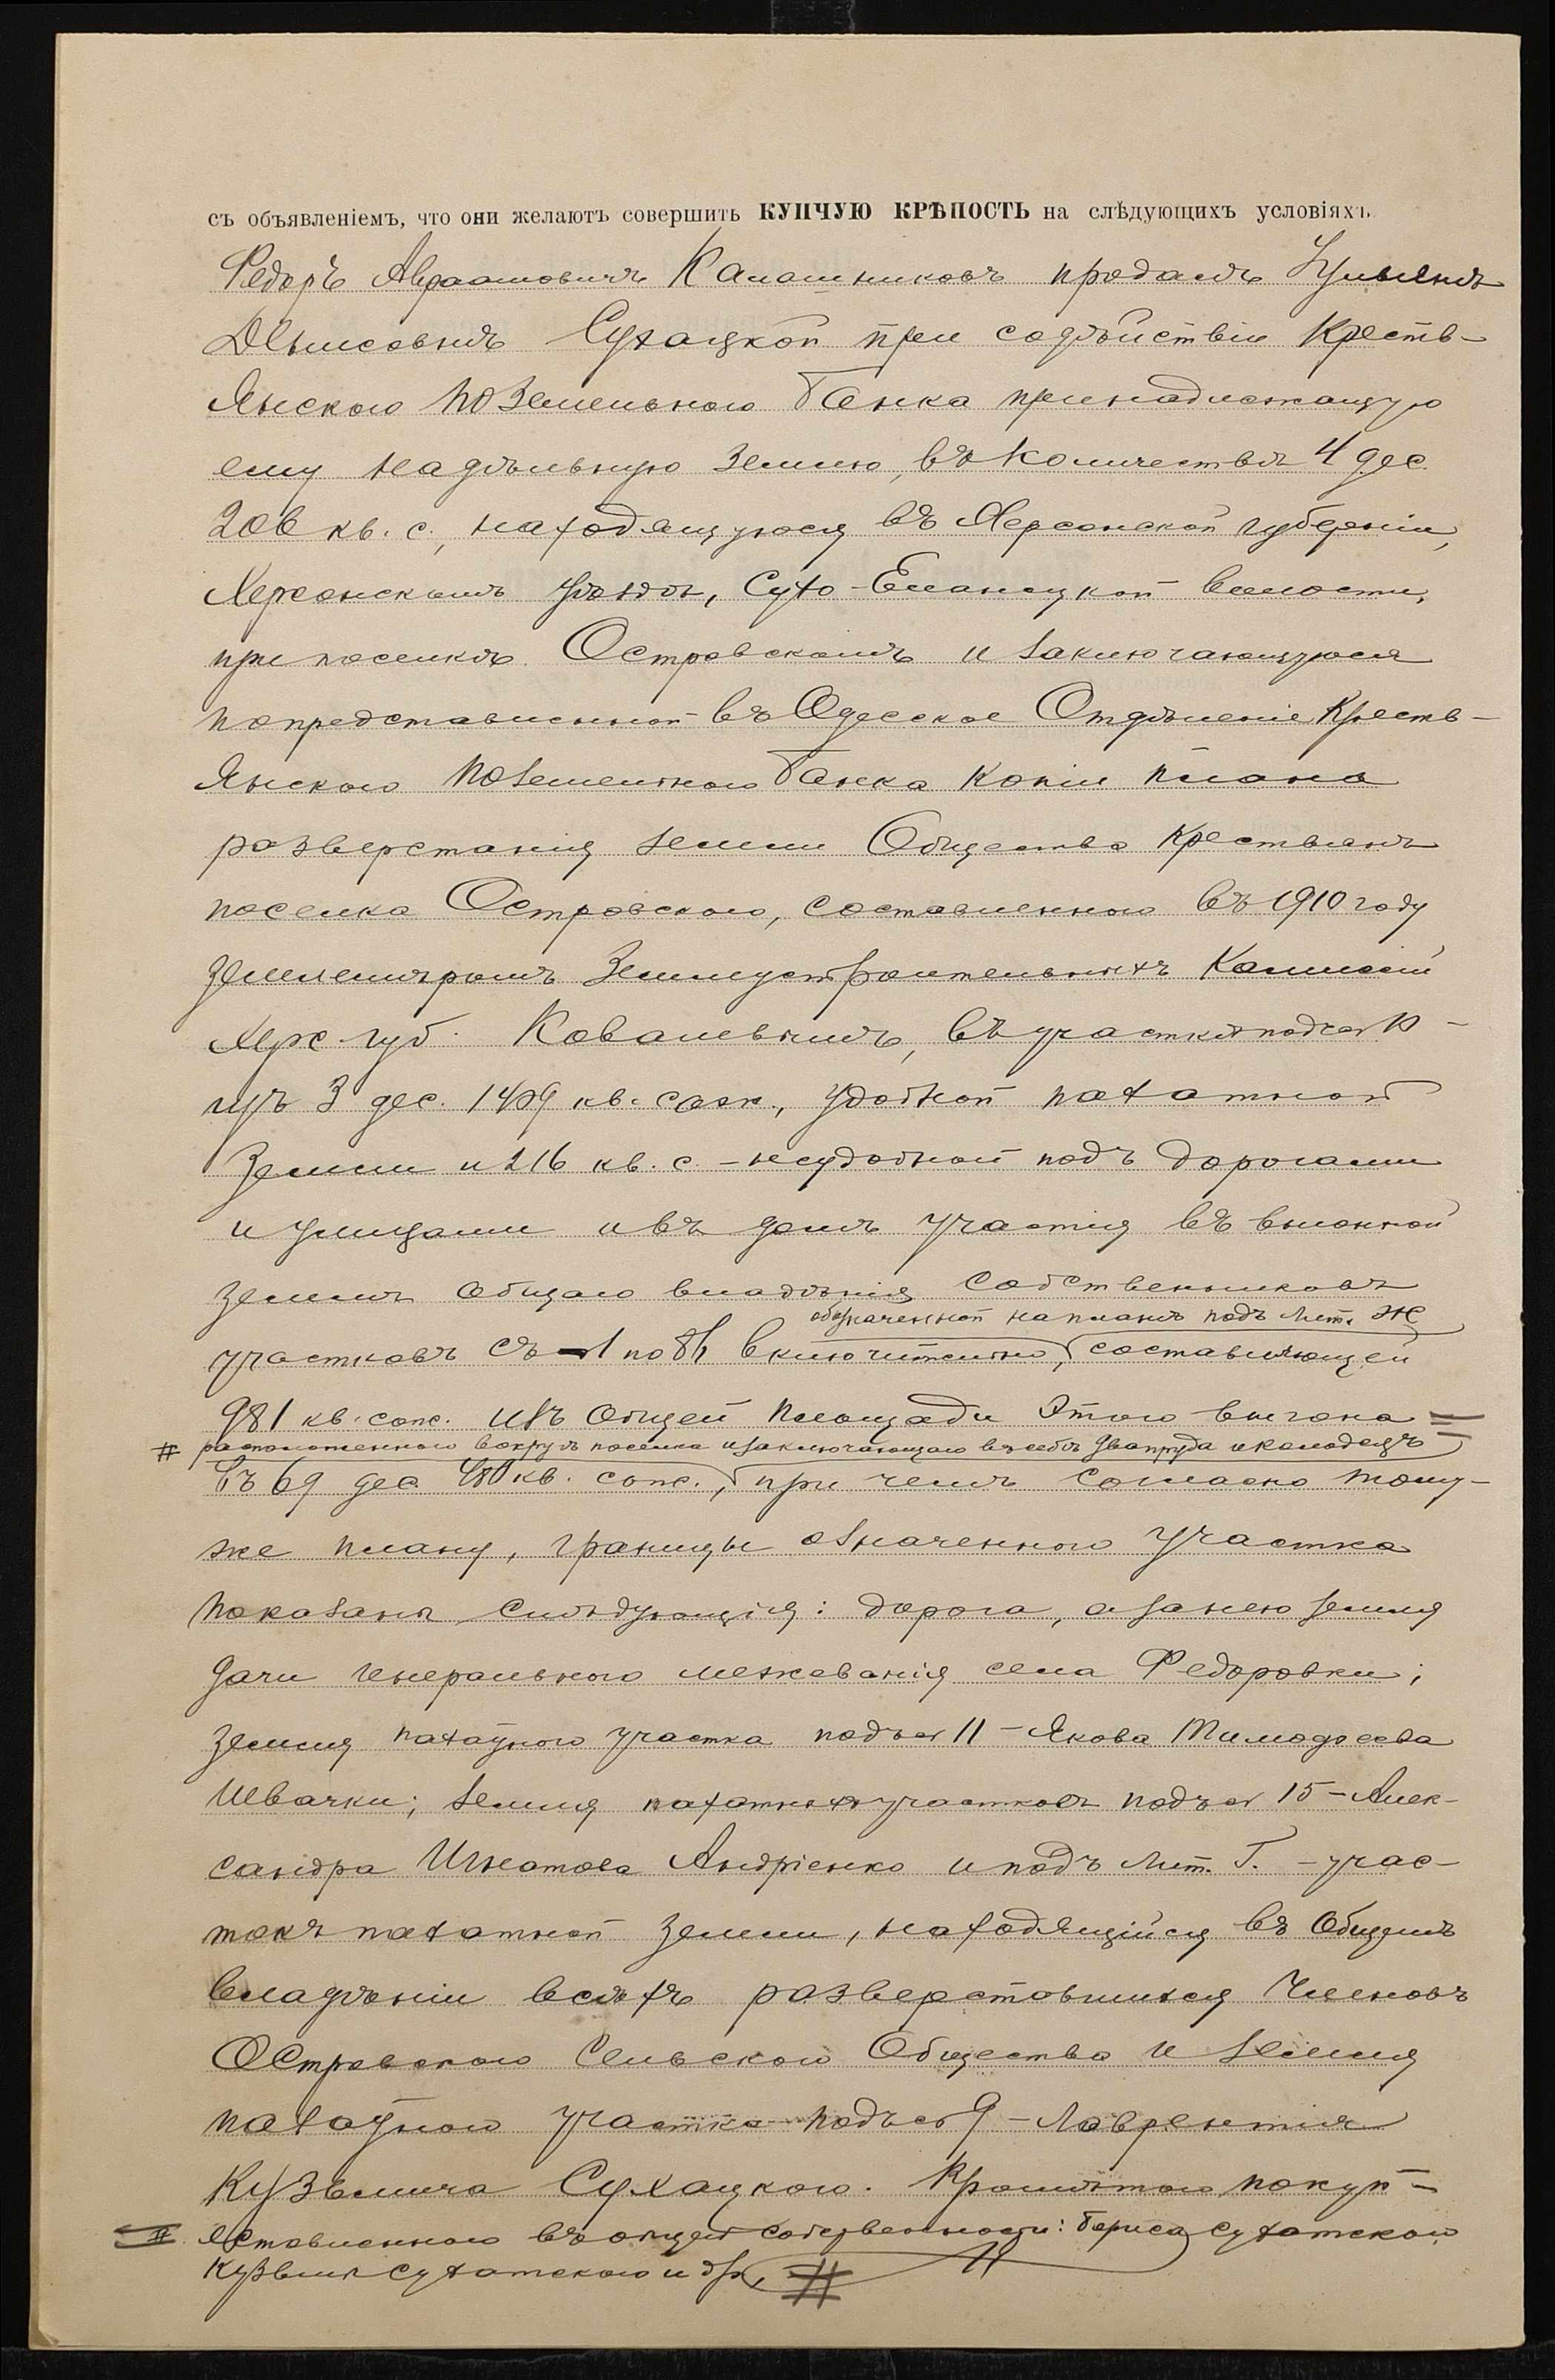 съ объявленіемъ, что они желаютъ совершить КУПЧУЮ КРѢПОСТЬ на слѣдующихъ условіяхъ.
Федоръ Авраамовичъ Калашниковъ продалъ Ульянѣ
Денисовнѣ Сухацкой при содѣйствіи Кресть-
янскаго Поземельнаго Банка принадлежащую
ему надѣльную землю, въ количествѣ 4 дес.
206 кв. с., находящуюся въ Херсонской губерніи,
Херсонскомъ уѣздѣ, Сухо-Еланецкой волости,
при поселкѣ Островскомъ и заключающуюся
по представленной въ Одесское Отдѣленіе Кресть-
янскаго Поземельнаго Банка копіи плана
разверстанія земли Общества крестьянъ
поселка Островскаго, составленнаго въ 1910 году
землемѣромъ Землеустроительныхъ Комиссій
Херс. губ. Ковалевымъ, въ участкѣ подъ № 10-
мъ 3 дес. 1409 кв. саж., удобной пахатной
земли и 216 кв. с. - неудобной подъ дорогами
и улицами и въ долѣ участія въ выгонной
землѣ общаго владѣнія собственниковъ
обозначенной на планѣ подъ Лит. Ж
участковъ съ 1 по включительно, составляющей
981 кв. саж. изъ общей площади этого выгона
# расположеннаго вокругъ поселка и заключающаго въ себѣ два пруда и колодезь
въ 69 дес. 480 кв. саж., при чемъ согласно тому-
же плану, границы означеннаго участка
показаны слѣдующія: дорога, а за нею земля
дачи генеральнаго межеванія села Федоровки;
земля пахатнаго участка подъ № 11 - Якова Тимофеева
Швачки; земля пахатныхъ участковъ подъ № 15 - Алек-
сандра Игнатова Андріенко и подъ Лит. Г. - учас-
токъ пахатной земли, находящійся въ общемъ
владѣніи всѣхъ разверставшихся членовъ
Островскаго Сельскаго Общества и земля
пахатнаго участка подъ № 9 - Лаврентія
Кузьмича Сухацкаго. Кромѣ того покуп-
# оставленнаго въ общей собственности: Бориса Сухатскаго
Кузьмы Сухатскаго и др. #